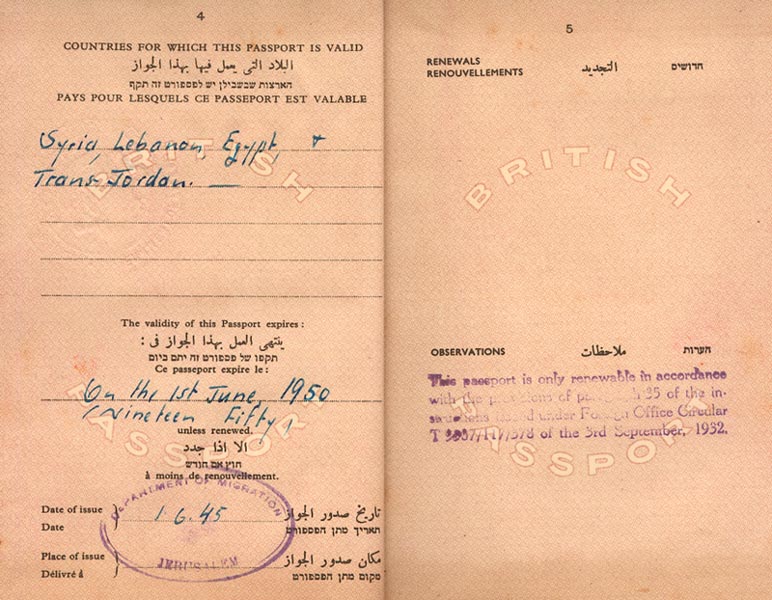 4
COUNTRIES FOR WHICH THIS PASSPORT IS VALID
البلاد التي يعمل فيها بهذا الجواز
הארצות שבשבילן יש לפספורט זה תקף
PAYS POUR LESQUELS CE PASSEPORT EST VALABLE
Syria, Lebanon, Egypt, +
Trans-Jordan. —
BRITISH
The validity of this Passport expires:
ينتهي العمل بهذا الجواز في:
תקפו של פספורט זה יתם ביום
Ce passeport expire le:
On the 1st June, 1950
(Nineteen Fifty)
unless renewed.
الا اذا جدد
חוץ אם חודש
à moins de renouvellement.
PASSPORT
DEPARTMENT OF MIGRATION
Date of issue
Date
1.6.45
تاريخ صدور الجواز
תאריך מתן הפספורט
Place of issue
Délivré à
JERUSALEM
مكان صدور الجواز
מקום מתן הפספורט
5
RENEWALS التجديد חדושים
RENOUVELLEMENTS
BRITISH
OBSERVATIONS ملاحظات הערות
This passport is only renewable in accordance
with the provisions of 25 of the in-
structions issued under Foreign Office Circular
T /378 of the 3rd September, 1932.
PASSPORT